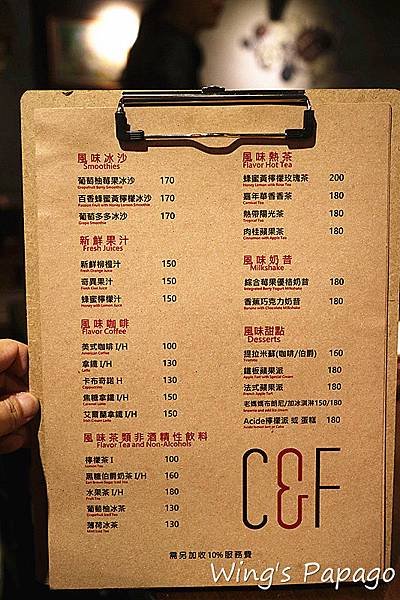 風味冰沙
Smoothies
葡萄柚莓果冰沙 170
Grapefruit Berry Smoothie
百香蜂蜜黃檸檬冰沙 170
Passion Fruit with Honey Lemon Smoothie
葡萄多多冰沙 170
Grape Smoothie
新鮮果汁
Fresh Juices
新鮮柳橙汁 150
Fresh Orange Juice
奇異果汁 150
Fresh Kiwi Juice
蜂蜜檸檬汁 150
Honey with Lemon Juice
風味咖啡
Flavor Coffee
美式咖啡 I/H 100
American Coffee
拿鐵 I/H 130
Latte
卡布奇諾 H 130
Cappuccino
焦糖拿鐵 I/H 150
Caramel Latte
艾爾蘭拿鐵 I/H 150
Irish Cream Latte
風味茶類非酒精性飲料
Flavor Tea and Non-Alcohols
檸檬茶 I 100
Lemon Tea
黑糖伯爵奶茶 I/H 160
Earl Brown Sugar Iced Tea
水果茶 I/H 180
Fruit Tea
葡萄柚冰茶 130
Grapefruit Iced Tea
薄荷冰茶 130
Mint Iced Tea
風味熱茶
Flavor Hot Tea
蜂蜜黃檸檬玫瑰茶 200
Honey Lemon with Rose Tea
嘉年華香香茶 180
Carnival Tea
熱帶陽光茶 180
Tropical Tea
肉桂蘋果茶 180
Cinnamon with Apple Tea
風味奶昔
Milkshake
綜合莓果優格奶昔 180
Integrated Berry Yogurt Milkshake
香蕉巧克力奶昔 180
Banana with Chocolate Milkshake
風味甜點
Desserts
提拉米蘇(咖啡/伯爵) 160
Tiramisu
鐵板蘋果派 180
Apple Tart with Special Cream
法式蘋果派 180
French Apple Tart
老媽媽布朗尼/加冰淇淋 150/180
Brownie and add Ice cream
Acide檸檬派 或 蛋糕 180
C&F
需另加收10%服務費
Wing's Papago